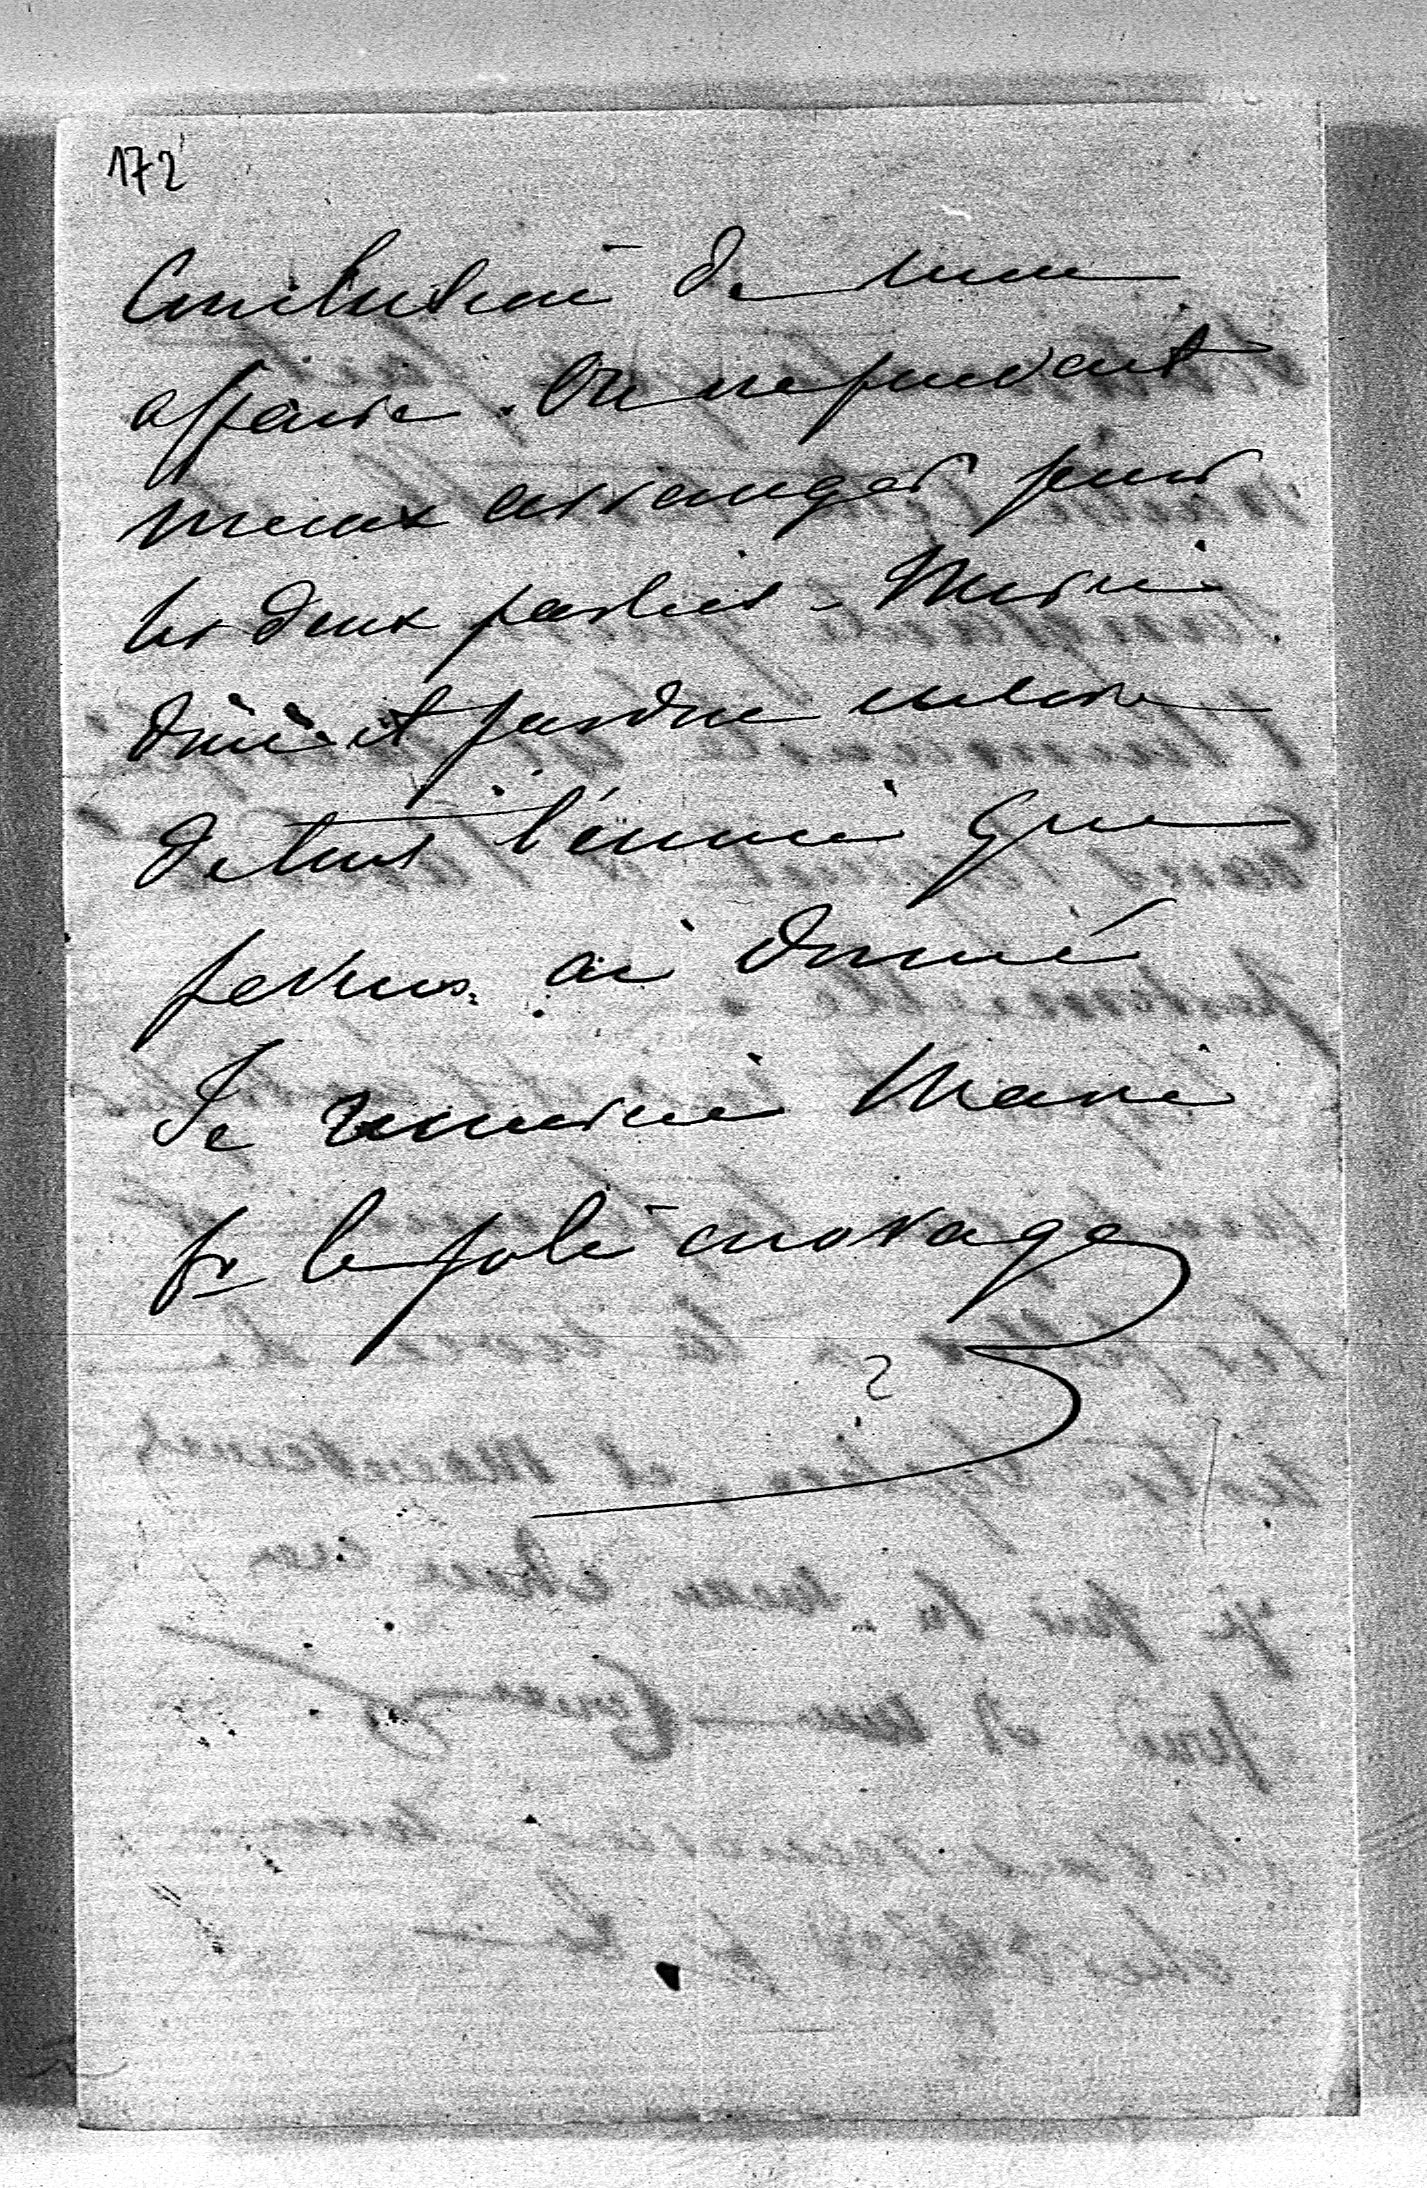 172
Conclusion de mon
affaire. On ne pouvait
mieux arranger pour
les deux parties. Merci
donc et pardon encore
de tout l'ennui que
je vous ai donné
Je remercie Marie
pr le joli ouvrage
2